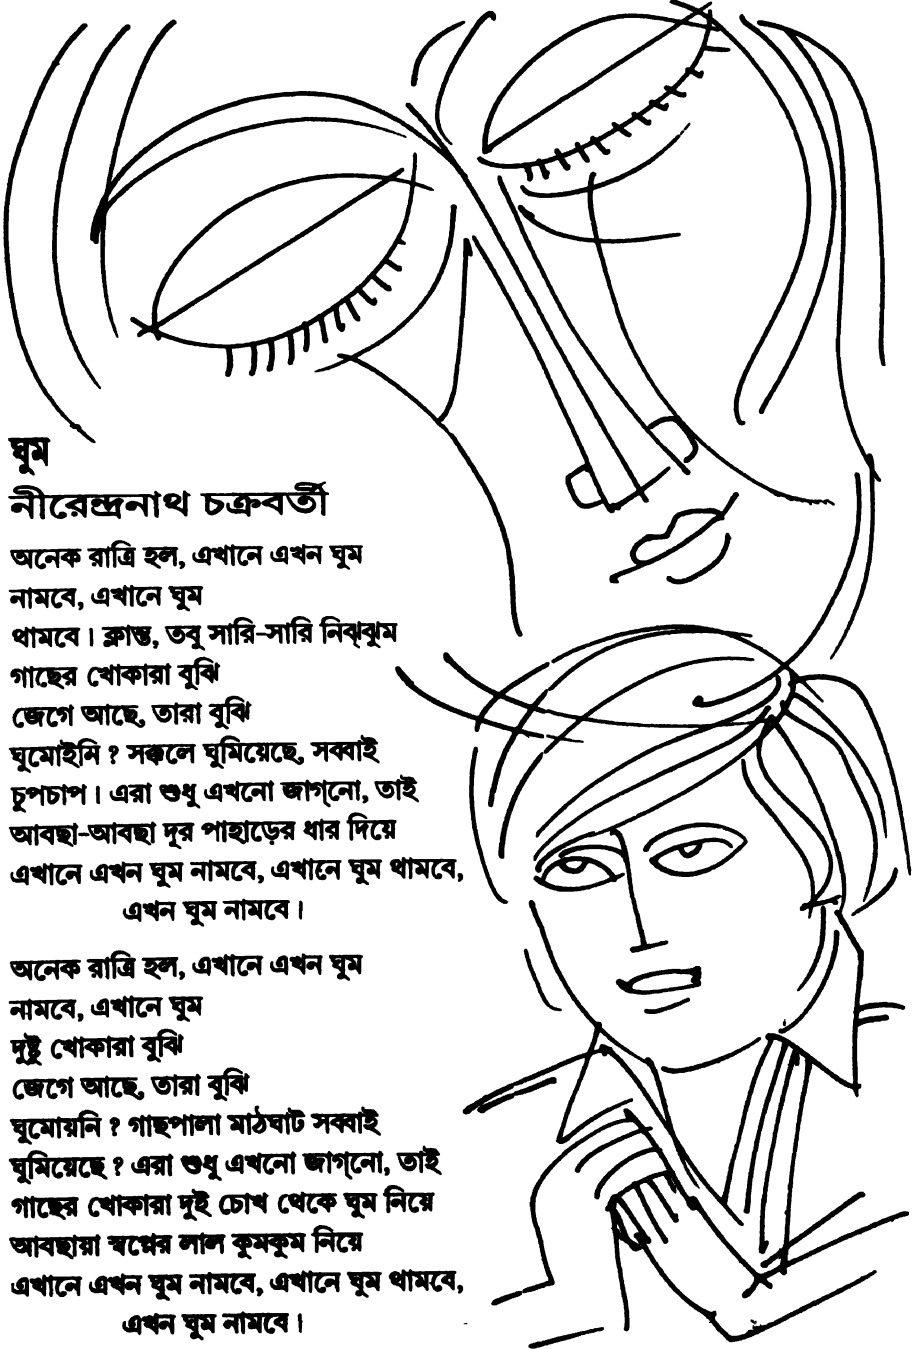 ঘুম
নীরেন্দ্রনাথ চক্রবর্তী
অনেক রাত্রি হল, এখানে এখন ঘুম
নামবে, এখানে ঘুম
থামবে। ক্লান্ত, তবু সারি-সারি নিঝ্ঝুম
গাছের খোকারা বুঝি
জেগে আছে, তারা বুঝি
ঘুমোইনি ? সক্কলে ঘুমিয়েছে, সব্বাই
চুপচাপ। এরা শুধু এখনো জাগ্নো, তাই
আবছা-আবছা দূর পাহাড়ের ধার দিয়ে
এখানে এখন ঘুম নামবে, এখানে ঘুম থামবে,
এখন ঘুম নামবে।
অনেক রাত্রি হল, এখানে এখন ঘুম
নামবে, এখানে ঘুম
দুষ্টু খোকারা বুঝি
জেগে আছে, তারা বুঝি
ঘুমোয়নি ? গাছপালা মাঠঘাট সব্বাই
ঘুমিয়েছে ? এরা শুধু এখনো জাগ্নো, তাই
গাছের খোকারা দুই চোখ থেকে ঘুম নিয়ে
আবছায়া স্বপ্নের লাল কুমকুম নিয়ে
এখানে এখন ঘুম নামবে, এখানে ঘুম থামবে,
এখন ঘুম নামবে।